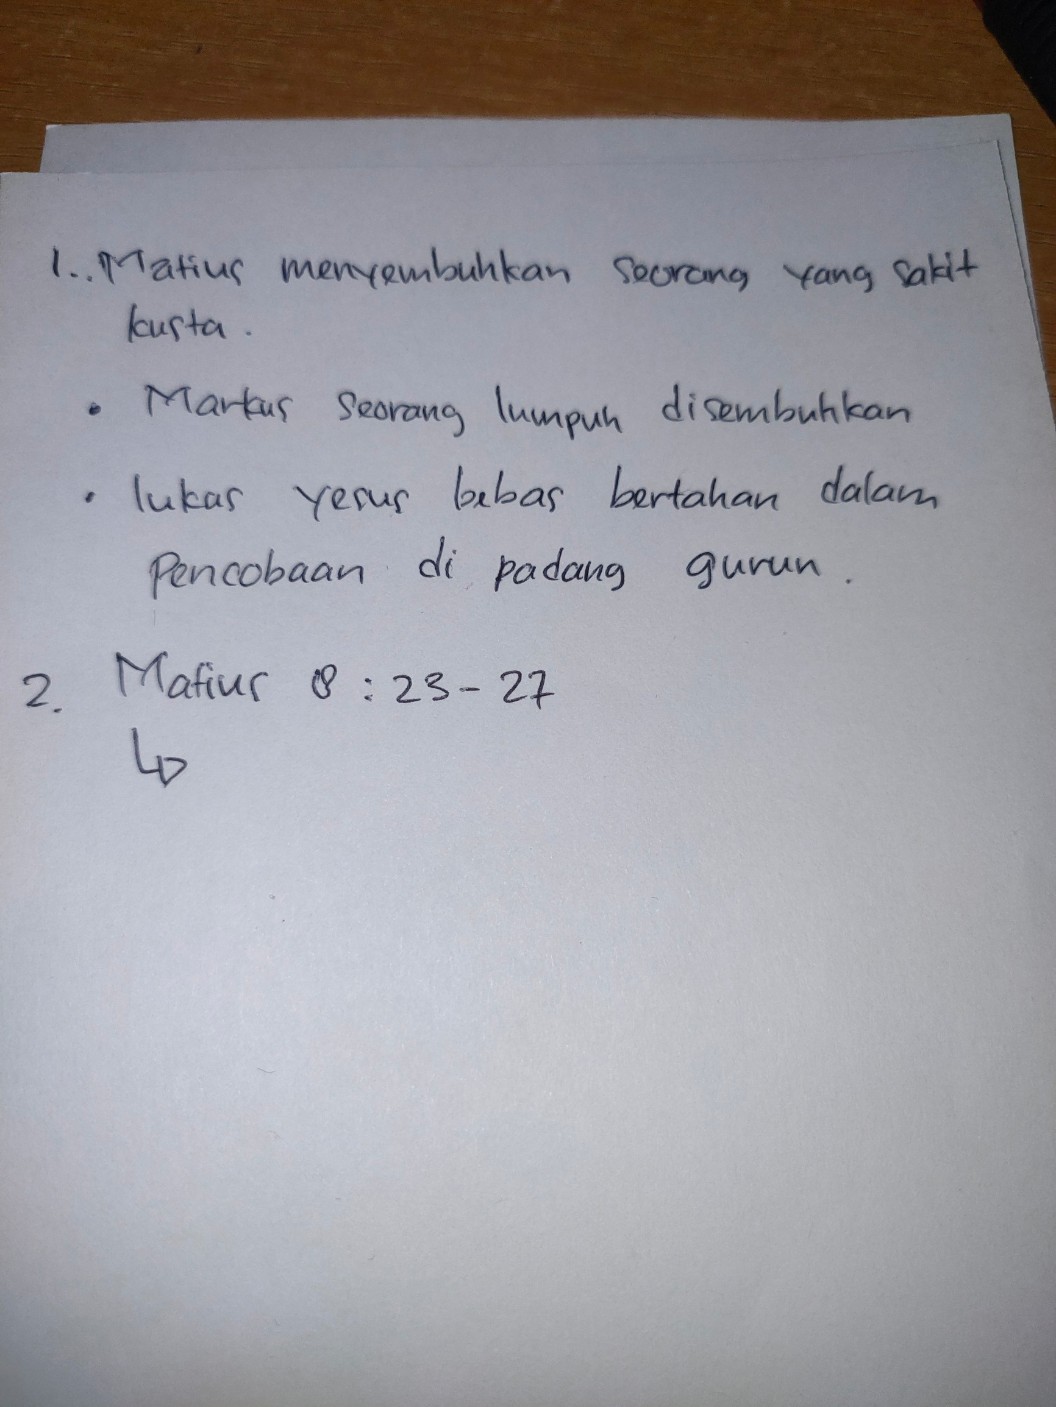 1.. Matius menyembuhkan seorang yang sakit
kusta.
• Markus seorang lumpuh disembuhkan
• lukas yesus bebas bertahan dalam
Pencobaan di padang gurun.
2. Matius 8 : 23 - 27
↳